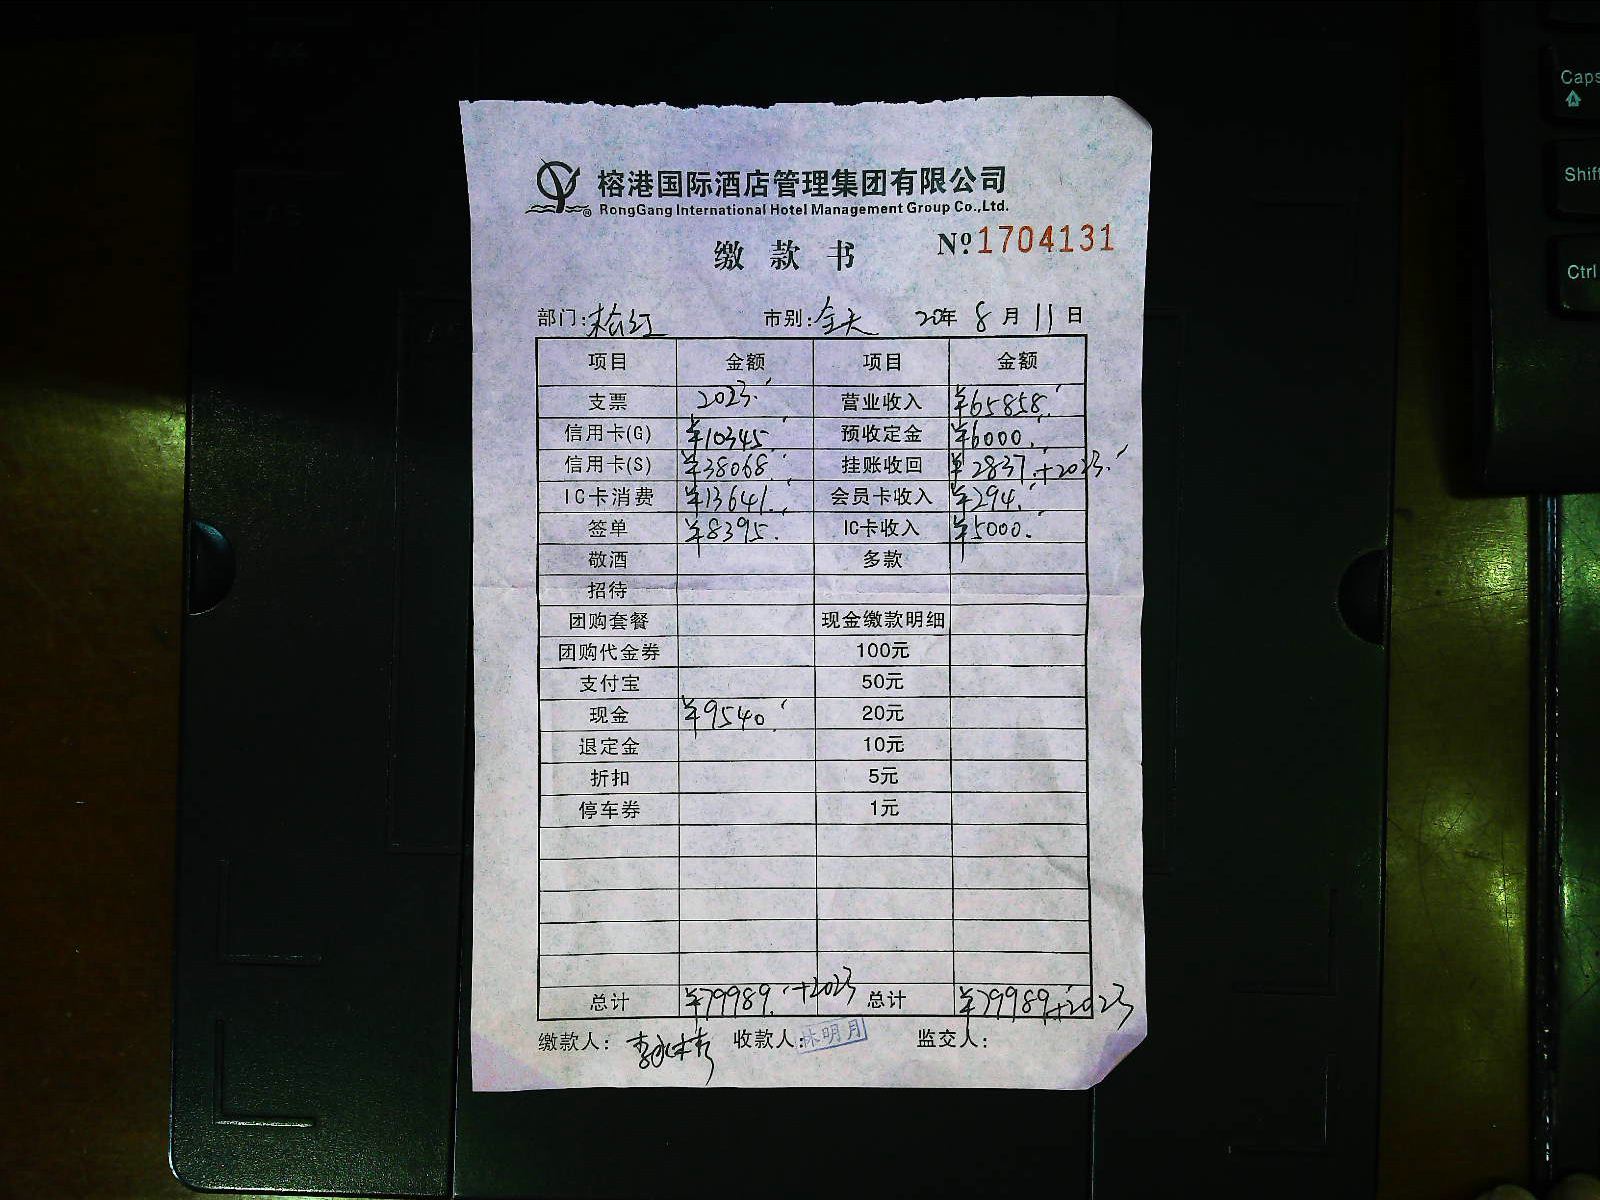 榕港国际酒店管理集团有限公司
RongGang International Hotel Management Group Co.,Ltd.
缴款书 Nº 1704131
部门:松江 市别:全天 20年 8月 11日
项目 金额 项目 金额
支票 2023. 营业收入 ¥65858.
信用卡(G) ¥10345. 预收定金 ¥6000.
信用卡(S) ¥38068. 挂账收回 ¥2837.+2023.
IC卡消费 ¥13641. 会员卡收入 ¥294.
签单 ¥8395. IC卡收入 ¥5000.
敬酒 多款
招待
团购套餐 现金缴款明细
团购代金券 100元
支付宝 50元
现金 ¥9540. 20元
退定金 10元
折扣 5元
停车券 1元
总计 ¥79989.+2023 总计 ¥79989.+2023
缴款人: 收款人:林明月 监交人:
Caps
Shift
Ctrl